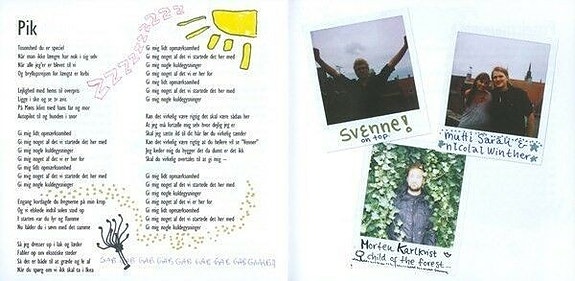 Pik
Tosserhed du er speciel
Når man ikke længes har nok i sig selv
Når alle jeg'er er blevet til vi
Og bryllupsrejsen for længst er forbi
Lejlighed med hems til overpris
Ligge i ske og se tv avis
På Møns klint med hans far og mor
Autopilot til og hunden i snor
Gi mig lidt opmærksomhed
Gi mig noget af det vi startede det her med
Gi mig nogle kuldegysninger
Gi mig noget af det vi er her for
Gi mig lidt opmærksomhed
Gi mig noget af det vi startede det her med
Gi mig nogle kuldegysninger
Engang kortlagde du fregnerne på min krop
Og vi elskede indtil solen stod op
I starten var du fyr og flamme
Nu falder du i søvn med det samme
Så jeg dresser op i lak og læder
Fabler op om eksotiske steder
Så det er både til at græde og le af
Når du spørg om vi ikk skal ta i Ikea
Gi mig lidt opmærksomhed
Gi mig noget af det vi startede det her med
Gi mig nogle kuldegysninger
Gi mig noget af det vi er her for
Gi mig lidt opmærksomhed
Gi mig noget af det vi startede det her med
Gi mig nogle kuldegysninger
Kan det virkelig være rigtig det skal være sådan her
At jeg må fortælle mig selv hvor dejlig jeg er
Skal jeg sætte ild til dit hår før du virkelig tænder
Kan det virkelig være rigtig at du hellere vil se "Venner"
Jeg keder mig du hygger dig du duner er det ikk
Skal du virkelig overtales til at gi mig –
Gi mig lidt opmærksomhed
Gi mig noget af det vi startede det her med
Gi mig nogle kuldegysninger
Gi mig lidt opmærksomhed
Gi mig noget af det vi startede det her med
Gi mig nogle kuldegysninger
GAB GAB GAB GAB GAB GAB GAB
SVENNE!
on top
mutti Sarah &
nicolai Winther
Morten Karlkvist
child of the forest